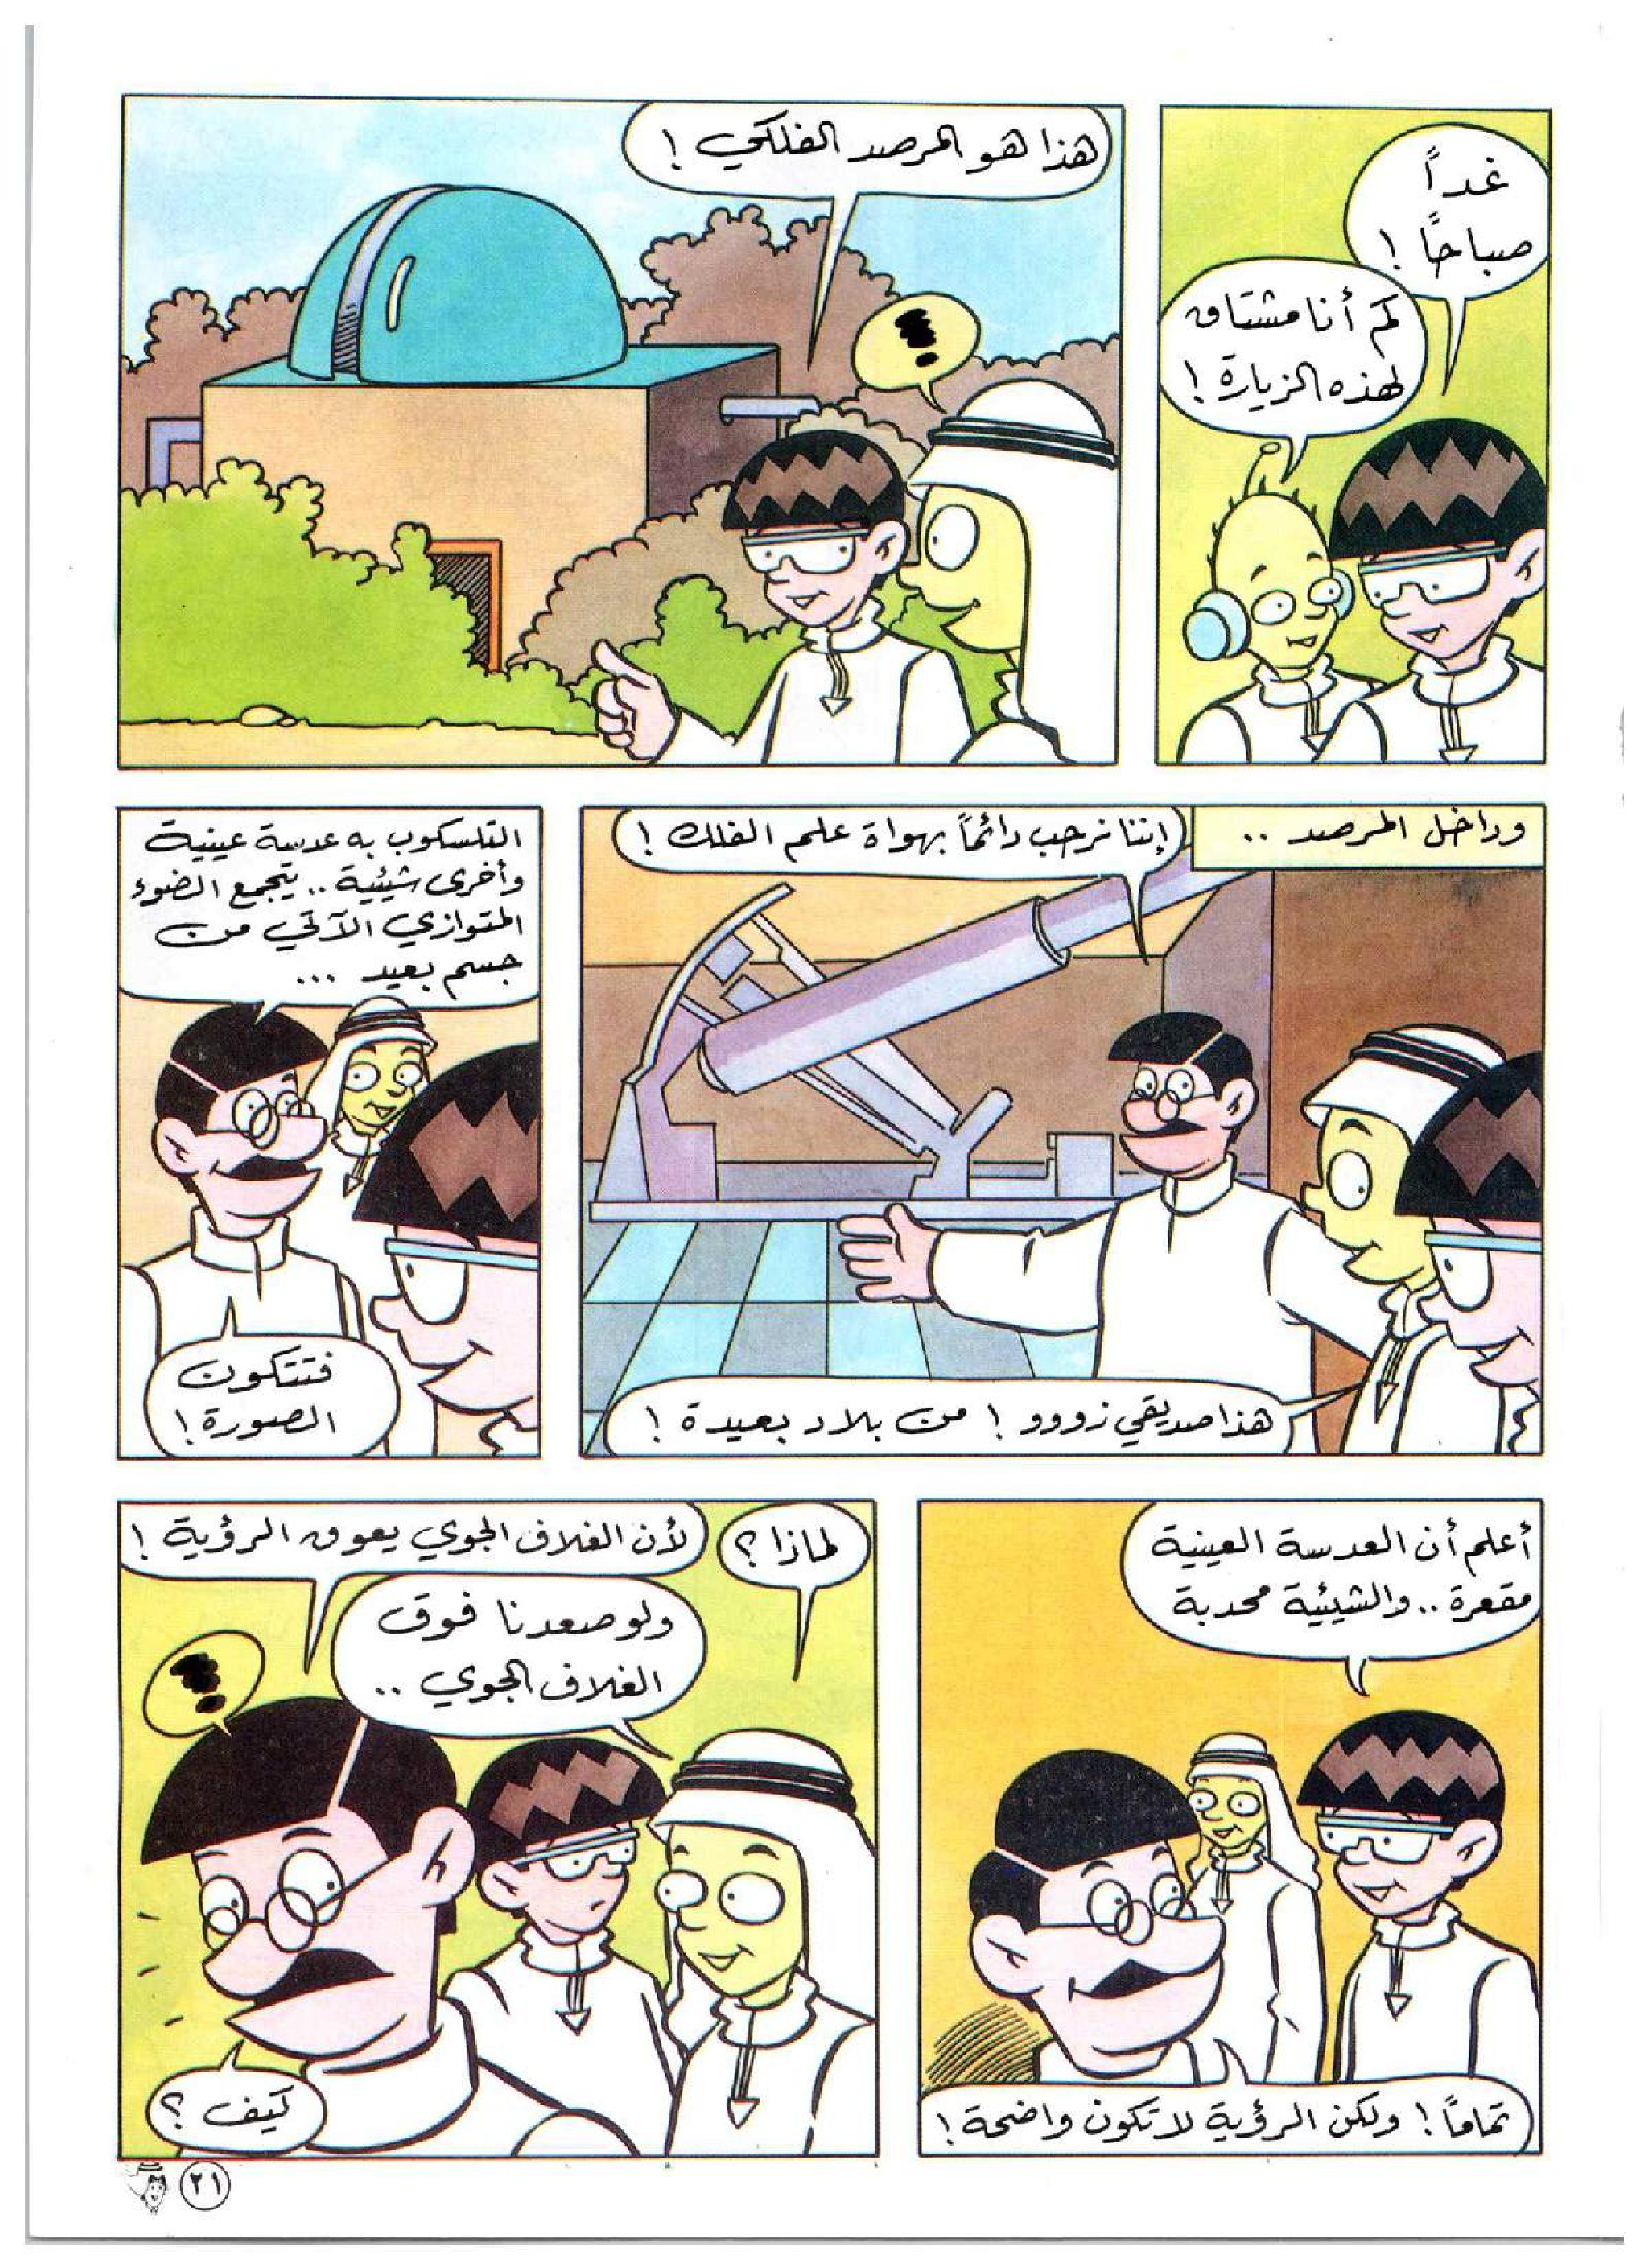 غداً
صباحاً !
كم أنا مشتاق
لهذه الزيارة !
هذا هو المرصد الفلكي !
وداخل المرصد ..
إننا نرحب دائماً بهواة علم الفلك !
هذا صديقي زووو ! من بلاد بعيدة !
التلسكوب به عدسة عينية
وأخرى شيئية .. يتجمع الضوء
المتوازي الآتي من
جسم بعيد ...
فتتكون
الصورة !
أعلم أن العدسة العينية
مقعرة .. والشيئية محدبة
تماماً ! ولكن الرؤية لا تكون واضحة !
لماذا ؟
لأن الغلاف الجوي يعوق الرؤية !
ولو صعدنا فوق
الغلاف الجوي ..
كيف ؟
٢١